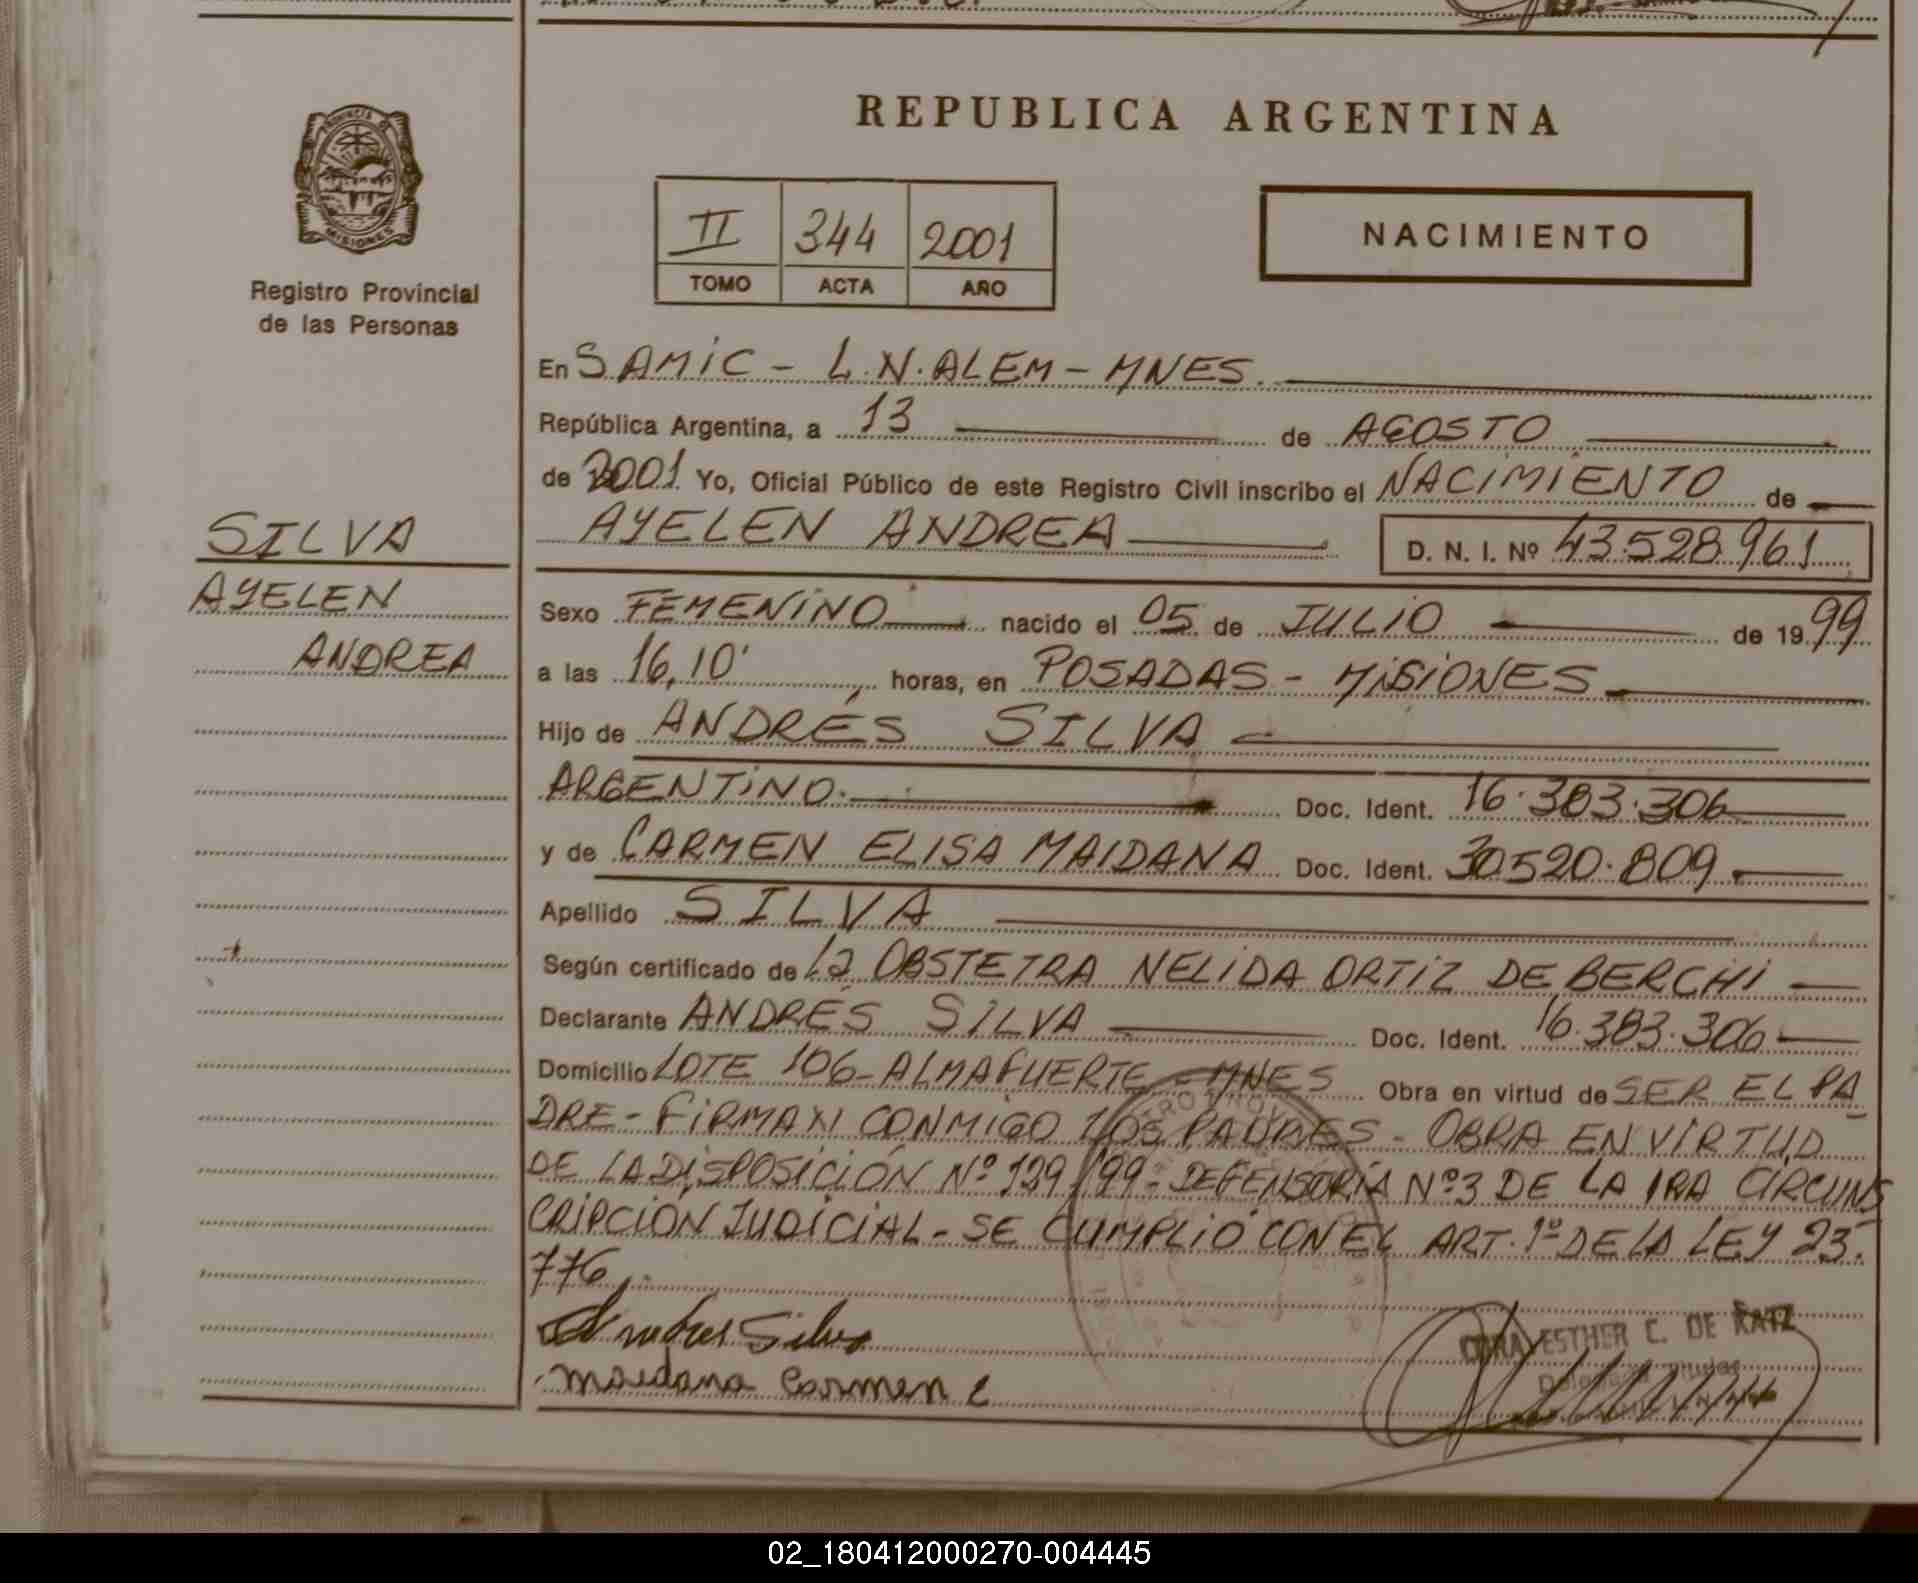 REPUBLICA ARGENTINA
PROVINCIA DE
MISIONES
Registro Provincial
de las Personas
II 344 2001
TOMO ACTA AÑO
NACIMIENTO
En SAMIC - L.N. ALEM - MNES.
República Argentina, a 13 de AGOSTO
de 2001 Yo, Oficial Público de este Registro Civil inscribo el NACIMIENTO de
AYELEN ANDREA D. N. I. Nº 43.528.961
SILVA
AYELEN
ANDREA
Sexo FEMENINO nacido el 05 de JULIO de 1999
a las 16,10' horas, en POSADAS - MISIONES
Hijo de ANDRÉS SILVA
ARGENTINO. Doc. Ident. 16.383.306
y de CARMEN ELISA MAIDANA Doc. Ident. 30520.809
Apellido SILVA
Según certificado de la OBSTETRA NELIDA ORTIZ DE BERCHI
Declarante ANDRÉS SILVA Doc. Ident. 16.383.306
Domicilio LOTE 106 - ALMAFUERTE - MNES Obra en virtud de SER EL PA
DRE - FIRMAN CONMIGO LOS PADRES - OBRA EN VIRTUD
DE LA DISPOSICIÓN Nº 129/99 - DEFENSORÍA Nº 3 DE LA 1RA CIRCUNS
CRIPCIÓN JUDICIAL - SE CUMPLIÓ CON EL ART. 1º DE LA LEY 23.
776.
Andres Silva
Maidana Carmen E
ESTHER C. DE KATZ
Titular
02_180412000270-004445